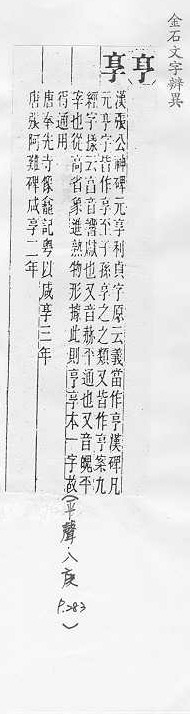 金石文字辨異
亨
享
漢張公神碑元享利貞字原云義當作亨漢碑凡
元亨字皆作享至子孫享之之類又皆作亨案九
經字樣云亯音響獻也又音赫平通也又音魄平
宰也從高省象進熟物形據此則亨享本一字故
得通用
唐奉先寺像龕記粵以咸享三年
唐張阿難碑咸享二年
(平聲.八庚 P.283)